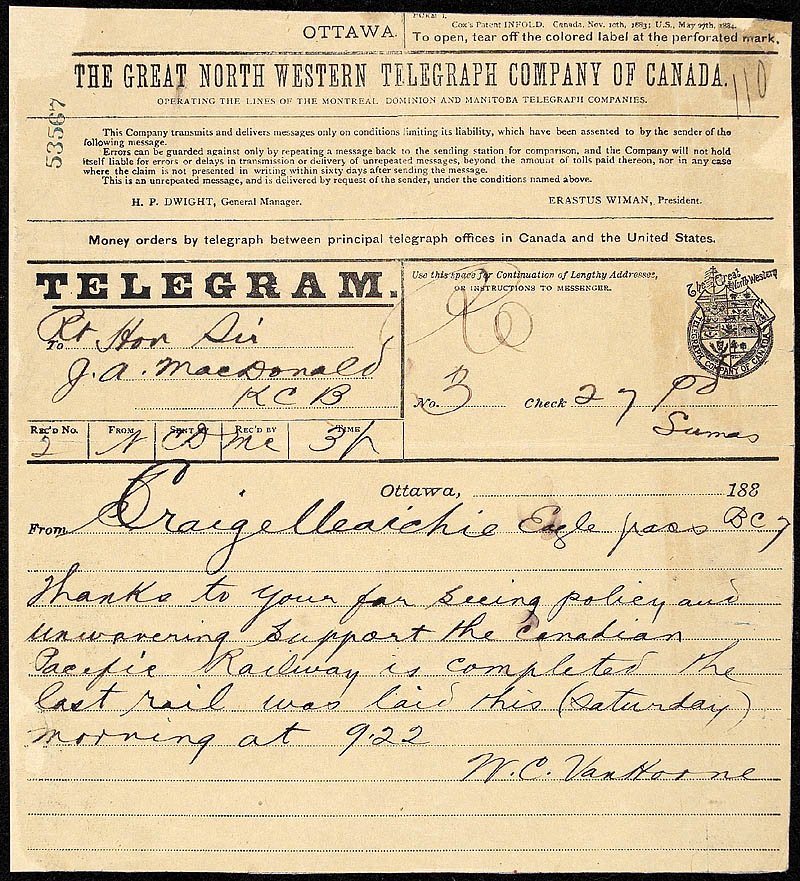 FORM 1.
OTTAWA.
Cox's Patent INFOLD. Canada, Nov. 10th, 1883; U.S., May 27th, 1884.
To open, tear off the colored label at the perforated mark.
THE GREAT NORTH WESTERN TELEGRAPH COMPANY OF CANADA.
110
OPERATING THE LINES OF THE MONTREAL DOMINION AND MANITOBA TELEGRAPH COMPANIES.
53567
This Company transmits and delivers messages only on conditions limiting its liability, which have been assented to by the sender of the
following message.
Errors can be guarded against only by repeating a message back to the sending station for comparison, and the Company will not hold
itself liable for errors or delays in transmission or delivery of unrepeated messages, beyond the amount of tolls paid thereon, nor in any case
where the claim is not presented in writing within sixty days after sending the message.
This is an unrepeated message, and is delivered by request of the sender, under the conditions named above.
H. P. DWIGHT, General Manager.
ERASTUS WIMAN, President.
Money orders by telegraph between principal telegraph offices in Canada and the United States.
TELEGRAM.
To Rt Hon Sir
J. A. MacDonald
K C B
Use this space for Continuation of Lengthy Addresses,
OR INSTRUCTIONS TO MESSENGER.
The Great North Western
TELEGRAPH COMPANY OF CANADA
No. 3 Check 27 Pd
Sumas
REC'D No. FROM SENT BY REC'D BY TIME
2 N CD Mc
Ottawa, 188
From CraigelleaichIe Eagle pass BC 7
Thanks to Your far seeing policy and
unwavering support the Canadian
Pacific Railway is completed the
last rail was laid this (Saturday)
morning at 9.22
W. C. VanHorne